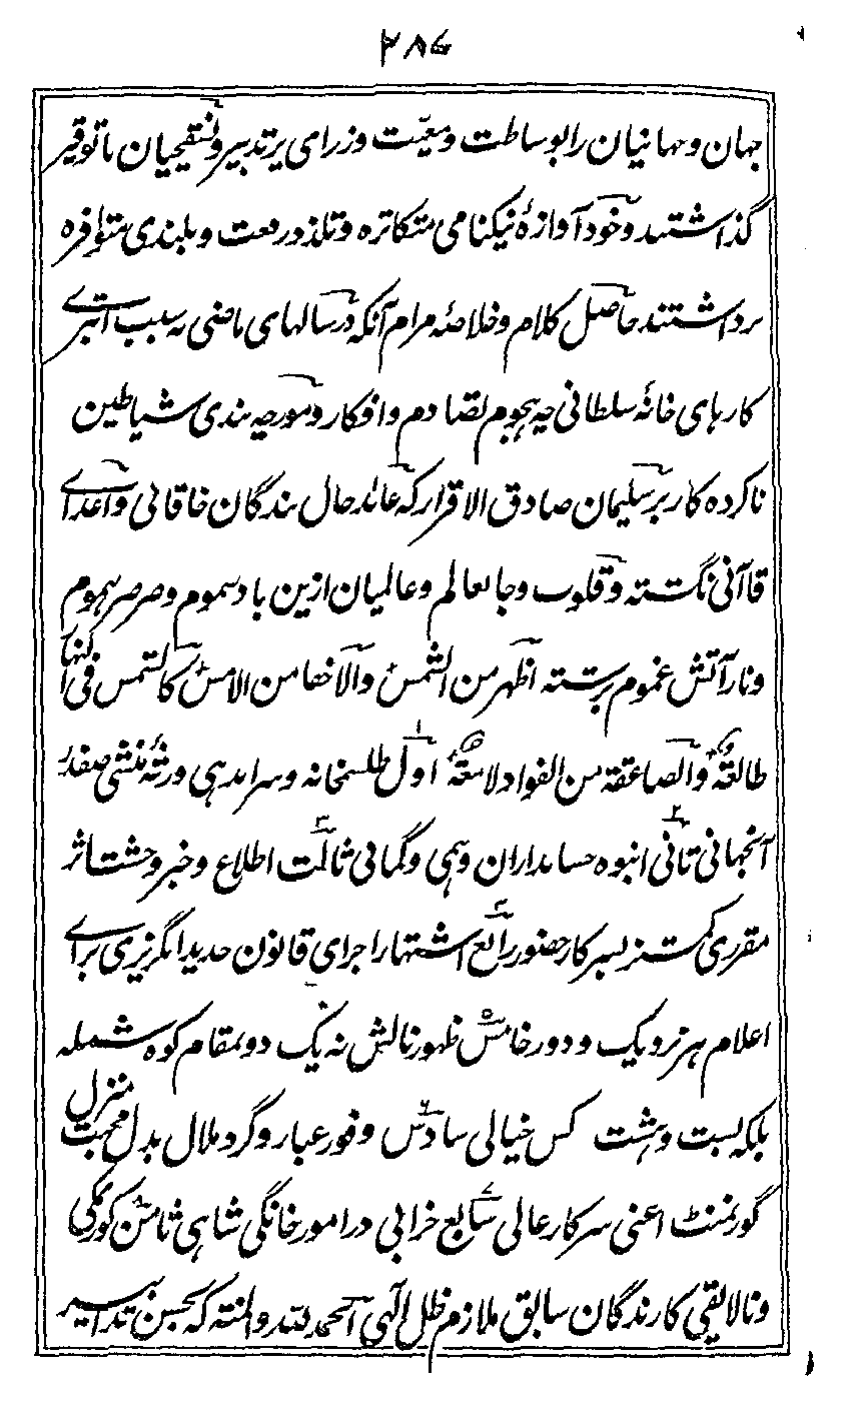 ۲۸۶
جهان وجهانیان را بوساطت ومعیّت وزرای پرتدبیر وتنقیحیان باتوقیر
گذاشتند وخود آوازهٔ نیکنامی متکاثره وتلذذ رفعت وبلندی متوافره
برداشتند حاصل کلام وخلاصهٔ مرام آنکه درسالهای ماضی به سبب ابتری
کارهای خانهٔ سلطانی چه هجوم تصادم وافکار ومورچه بندی شیاطین
ناکرده کار بر سلیمان صادق الاقرار که عائد حال بندگان خاقانی واعدای
قاآنی نگشته وقلوب وجا بعالم وعالمیان ازین باد سموم وصرصر هموم
ونار آتش غموم برشته اظهر من الشمس والاخفا من الامس کالشمس فی النهار
طالعة والصاعقة من الفواد لامعة اول طلسمخانه وسرابدهی ورثهٔ منشی صفدر
آنجهانی ثانی انبوه حسابداران وهمی وگمانی ثالث اطلاع وخبر وحشت اثر
مقرری کمشنر بسرکار حضور رابع اشتهار اجرای قانون جدید انگریزی برای
اعلام هر نزدیک ودور خامس ظهور نالش نه یک دو بمقام کوه شمله
بلکه بست وهشت کس خیالی سادس وفور غبار وگرد ملال بدل محبت منزل
گورنمنٹ اعنی سرکار عالی سابع خرابی در امور خانگی شاهی ثامن کورنمکی
ونالایقی کارندگان سابق ملازم ظل الٰهی الحمد لله والمنته که بحسن تدابیر